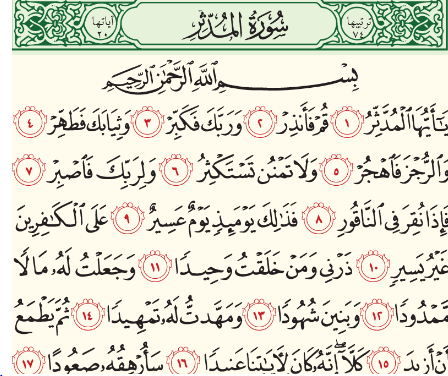 ترتيبها ٧٤ سُورَةُ المُدَّثِّر آياتها
بِسْمِ ٱللَّهِ ٱلرَّحْمَٰنِ ٱلرَّحِيمِ
يَٰٓأَيُّهَا ٱلْمُدَّثِّرُ ١ قُمْ فَأَنذِرْ ٢ وَرَبَّكَ فَكَبِّرْ ٣ وَثِيَابَكَ فَطَهِّرْ ٤
وَٱلرُّجْزَ فَٱهْجُرْ ٥ وَلَا تَمْنُن تَسْتَكْثِرُ ٦ وَلِرَبِّكَ فَٱصْبِرْ ٧
فَإِذَا نُقِرَ فِي ٱلنَّاقُورِ ٨ فَذَٰلِكَ يَوْمَئِذٍ يَوْمٌ عَسِيرٌ ٩ عَلَى ٱلْكَٰفِرِينَ
غَيْرُ يَسِيرٍ ١٠ ذَرْنِي وَمَنْ خَلَقْتُ وَحِيدًا ١١ وَجَعَلْتُ لَهُۥ مَالًا
مَّمْدُودًا ١٢ وَبَنِينَ شُهُودًا ١٣ وَمَهَّدتُّ لَهُۥ تَمْهِيدًا ١٤ ثُمَّ يَطْمَعُ
أَنْ أَزِيدَ ١٥ كَلَّآ إِنَّهُۥ كَانَ لِأٓيَٰتِنَا عَنِيدًا ١٦ سَأُرْهِقُهُۥ صَعُودًا ١٧